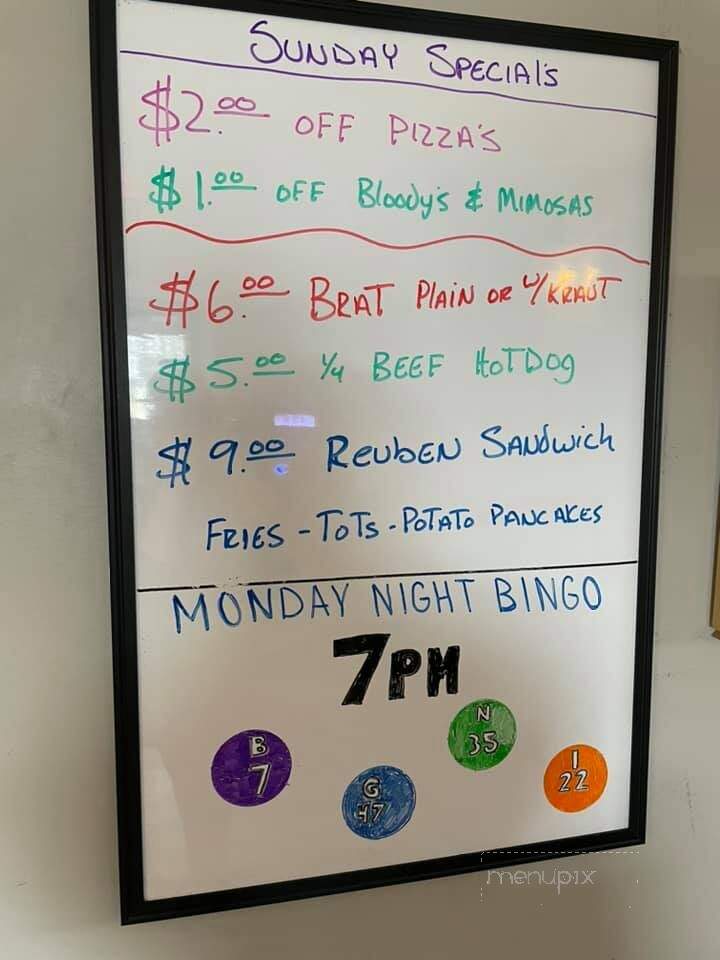 SUNDAY SPECIAL'S
$2.00 OFF PIZZA'S
$1.00 OFF Bloody's & MIMOSAS
$6.00 BRAT PLAIN OR W/KRAUT
$5.00 1/4 BEEF HOTDOG
$9.00 REUBEN SANDWICH
FRIES - TOTS - POTATO PANCAKES
MONDAY NIGHT BINGO
7PM
B
7
G
47
N
35
I
22
menupix